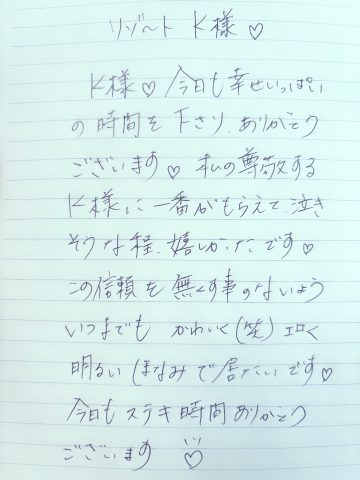 リゾート K様♡
K様♡今日も幸せいっぱい
の時間を下さり、ありがとう
ございます♡ 私の尊敬する
K様に一番がもらえて、泣き
そうな程、嬉しかったです♡
この信頼を無くす事のないよう
いつまでも かわいく(笑)エロく
明るい ほなみで居たいです♡
今日もステキ時間ありがとう
ございます ♡